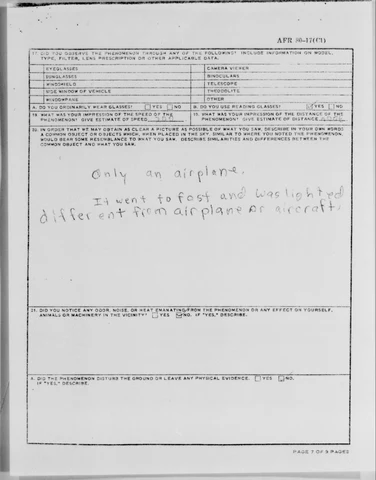 AFR 80-17(C1)
17. DID YOU OBSERVE THE PHENOMENON THROUGH ANY OF THE FOLLOWING? INCLUDE INFORMATION ON MODEL, TYPE, FILTER, LENS PRESCRIPTION OR OTHER APPLICABLE DATA.
EYEGLASSES CAMERA VIEWER
SUNGLASSES BINOCULARS
WINDSHIELD TELESCOPE
SIDE WINDOW OF VEHICLE THEODOLITE
WINDOWPANE OTHER
A. DO YOU ORDINARILY WEAR GLASSES? YES NO B. DO YOU USE READING GLASSES? YES NO
18. WHAT WAS YOUR IMPRESSION OF THE SPEED OF THE PHENOMENON? GIVE ESTIMATE OF SPEED
19. WHAT WAS YOUR IMPRESSION OF THE DISTANCE OF THE PHENOMENON? GIVE ESTIMATE OF DISTANCE
20. IN ORDER THAT WE MAY OBTAIN AS CLEAR A PICTURE AS POSSIBLE OF WHAT YOU SAW, DESCRIBE IN YOUR OWN WORDS
A COMMON OBJECT OR OBJECTS WHICH, WHEN PLACED IN THE SKY, SIMILAR TO WHERE YOU NOTED THE PHENOMENON,
WOULD BEAR SOME RESEMBLANCE TO WHAT YOU SAW. DESCRIBE SIMILARITIES AND DIFFERENCES BETWEEN THE
COMMON OBJECT AND WHAT YOU SAW.
Only an airplane.
It went to fast and was lighted
different from airplane or aircraft.
21. DID YOU NOTICE ANY ODOR, NOISE, OR HEAT EMANATING FROM THE PHENOMENON OR ANY EFFECT ON YOURSELF,
ANIMALS OR MACHINERY IN THE VICINITY? YES NO. IF "YES," DESCRIBE.
DID THE PHENOMENON DISTURB THE GROUND OR LEAVE ANY PHYSICAL EVIDENCE. YES NO.
IF "YES," DESCRIBE.
PAGE 7 OF 9 PAGES